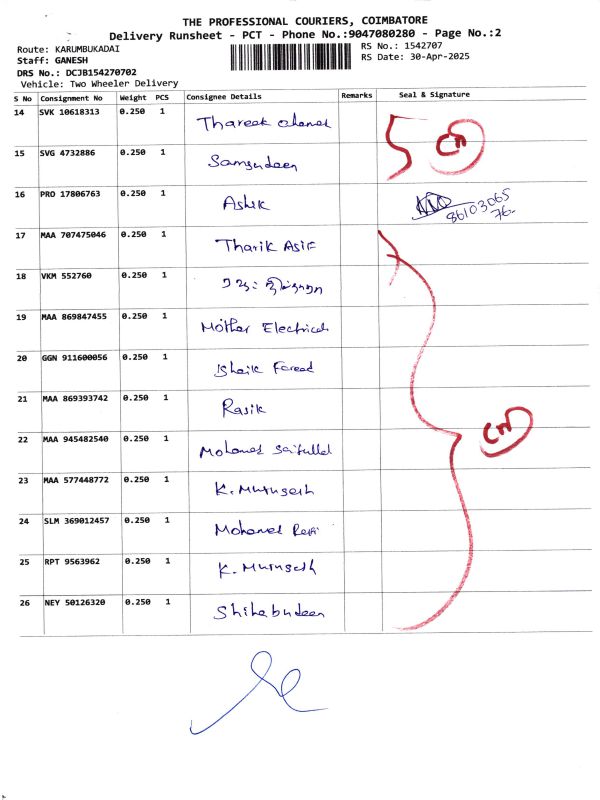 THE PROFESSIONAL COURIERS, COIMBATORE
Delivery Runsheet - PCT - Phone No.:9047080280 - Page No.:2
Route: KARUMBUKADAI
RS No.: 1542707
Staff: GANESH
RS Date: 30-Apr-2025
DRS No.: DCJB154270702
Vehicle: Two Wheeler Delivery
S No Consignment No Weight PCS Consignee Details Remarks Seal & Signature
14 SVK 10618313 0.250 1 Thareek
15 SVG 4732886 0.250 1 Samsudeen
16 PRO 17806763 0.250 1 Ashik 86103065
76-
17 MAA 707475046 0.250 1 Tharik Asif
18 VKM 552760 0.250 1
19 MAA 869847455 0.250 1 Mother Electrical
20 GGN 911600056 0.250 1 Ishaik Fareed
21 MAA 869393742 0.250 1 Rasik
22 MAA 945482540 0.250 1 Mohamed Saifullah
23 MAA 577448772 0.250 1 K. Murugesh
24 SLM 369012457 0.250 1 Mohamed Rafi
25 RPT 9563962 0.250 1 K. Murugesh
26 NEY 50126320 0.250 1 Shihabudeen